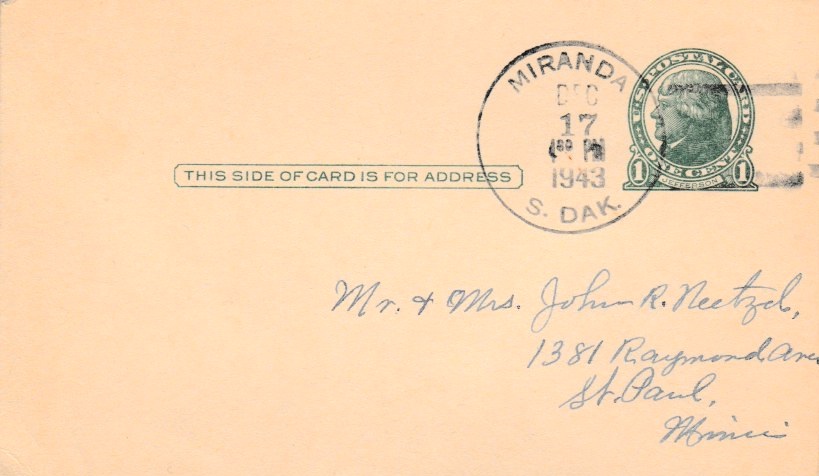 MIRANDA
DEC
17
PM
1943
S. DAK.
U.S. POSTAL CARD
1 ONE CENT 1
JEFFERSON
THIS SIDE OF CARD IS FOR ADDRESS
Mr. & Mrs. John R. Neetzel,
1381 Raymond Ave
St. Paul,
Minn